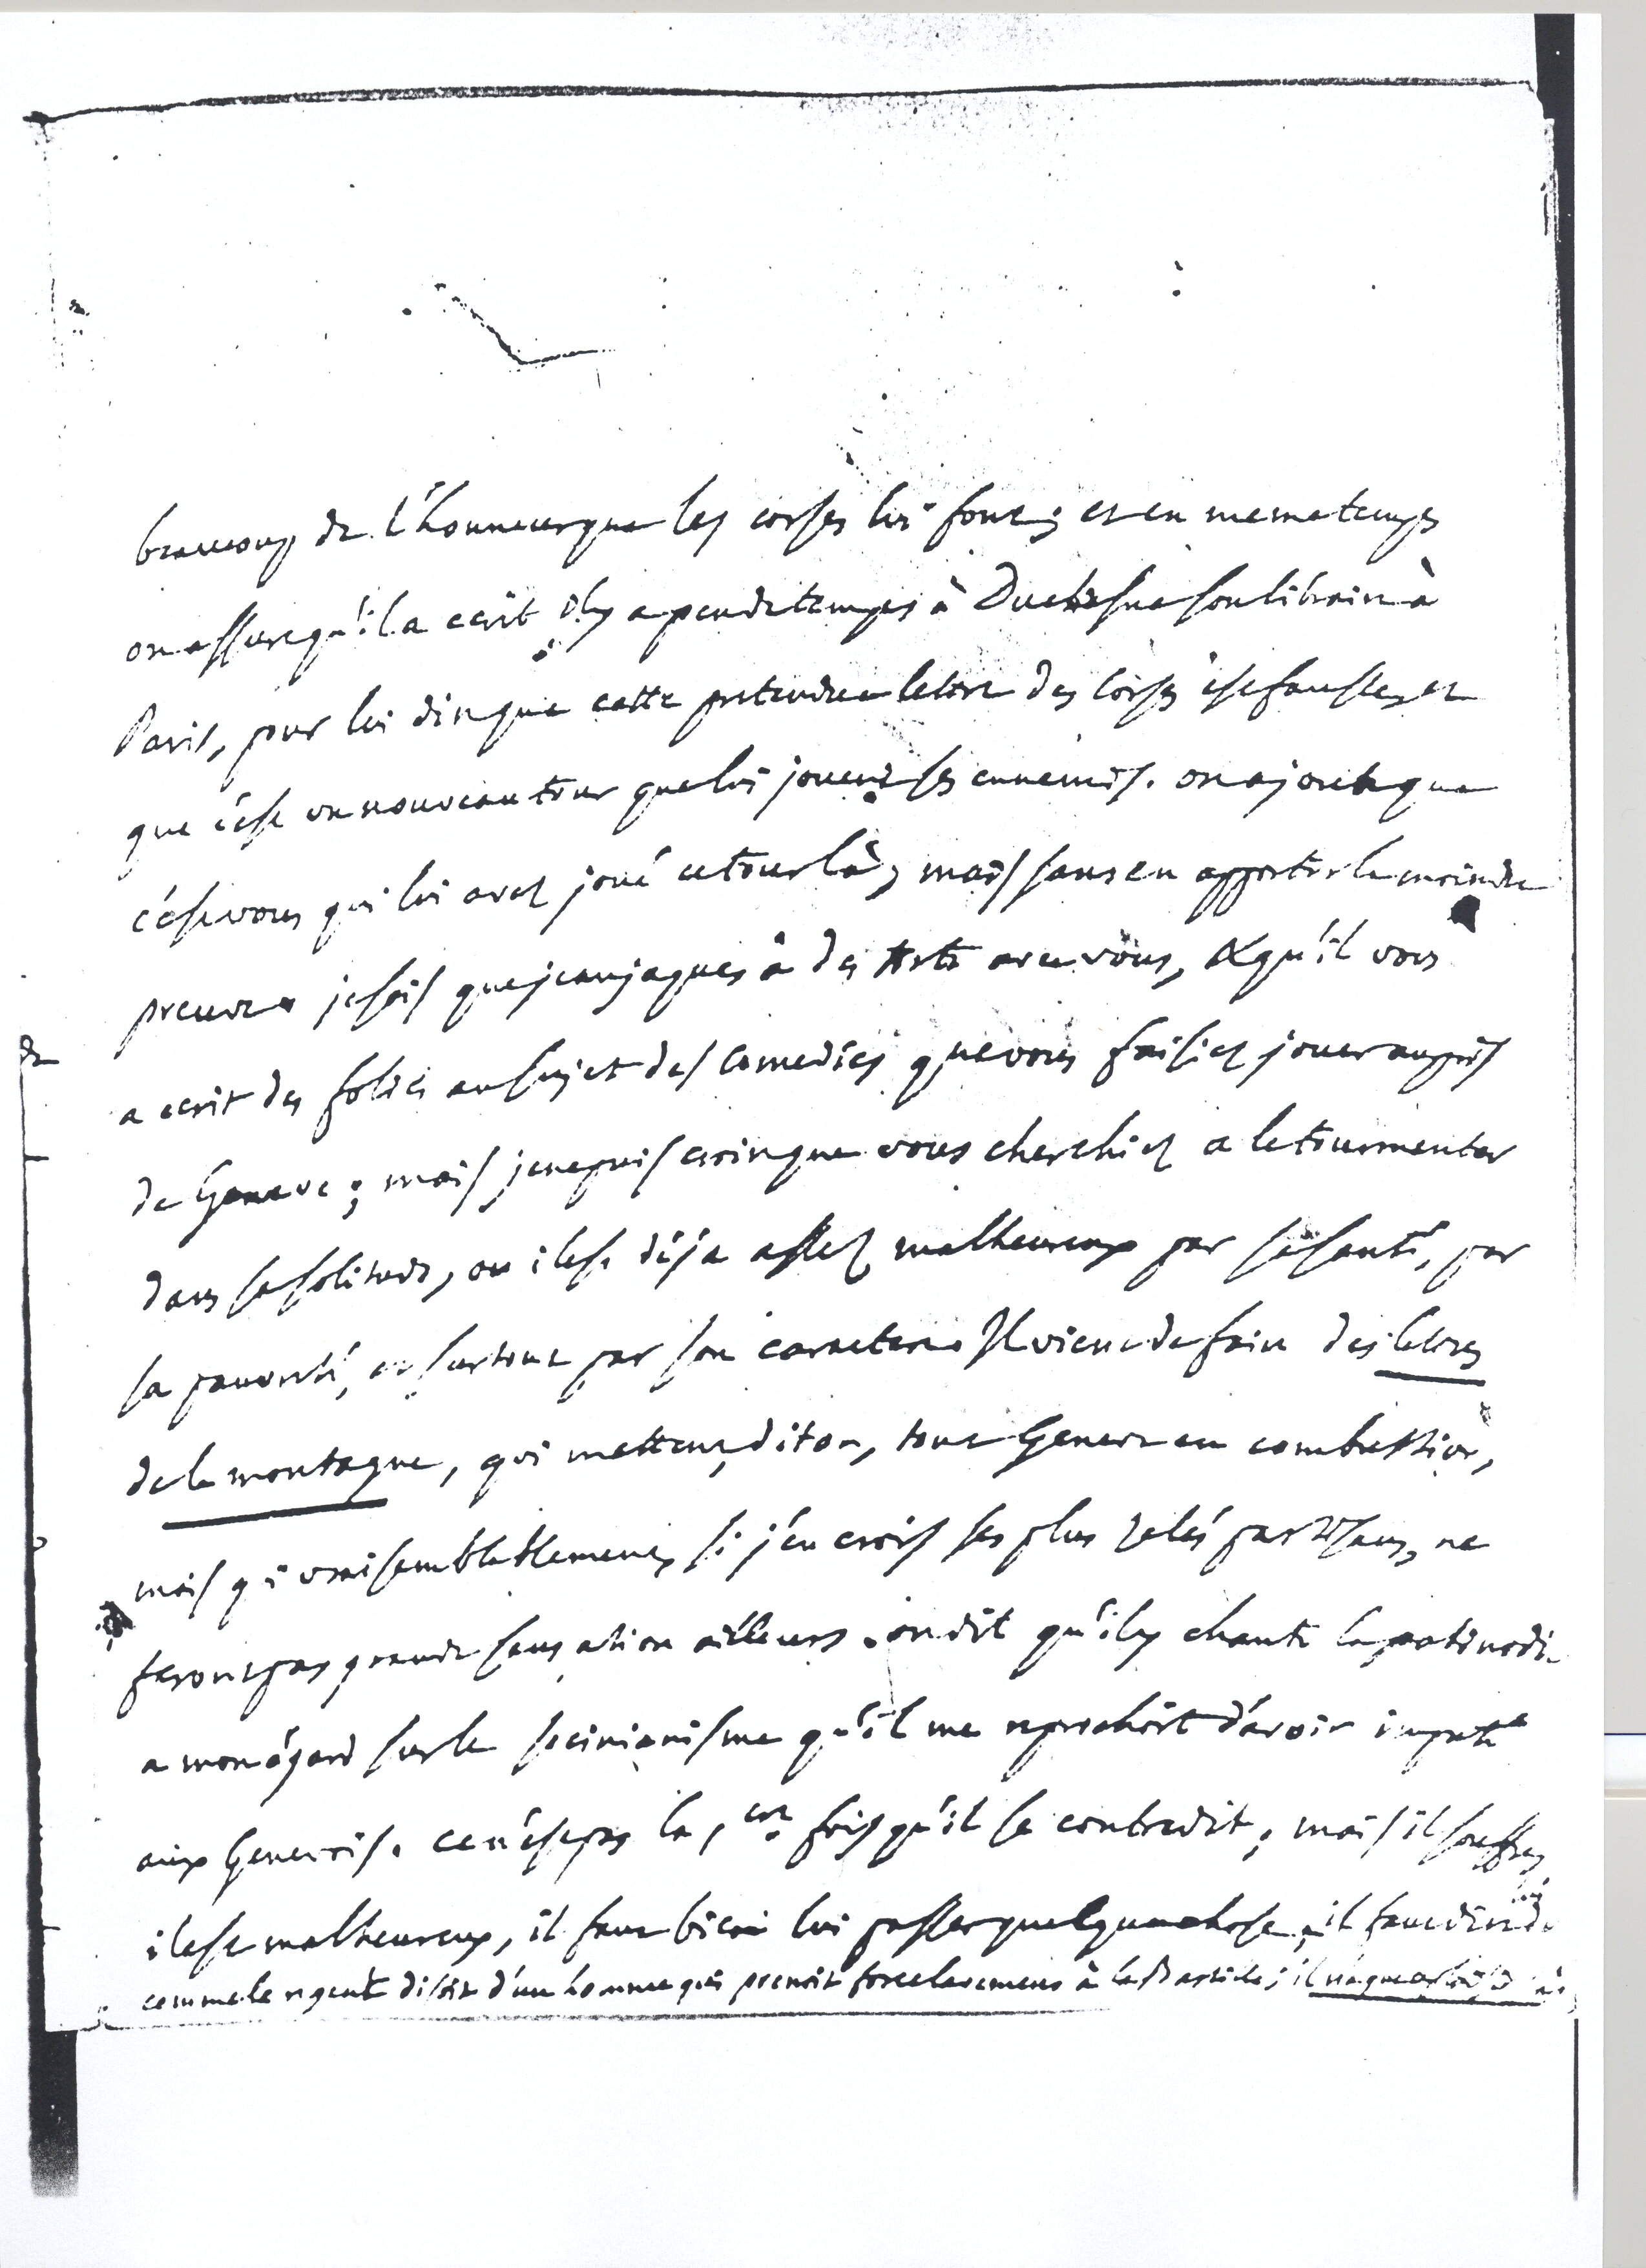 beaucoup de l'honneur que les corses lui font; et en meme temps
on assure qu'il a ecrit il y a peu de temps à Duchesne son libraire à
Paris, pour lui dire que cette pretendue lettre des Corses est fausse, et
que c'est un nouveau tour que lui jouent ses ennemis. on ajoute que
c'est vous qui lui avez joué ce tour là, mais sans en apporter la moindre
preuve. je sais que jean jaques à des torts avec vous, & qu'il vous
a ecrit des folies au sujet des Comedies que vous faisiez jouer auprès
de Geneve; mais je ne puis croire que vous cherchiez a le tourmenter
dans sa solitude, ou il est déja assez malheureux par sa santé, par
sa pauvreté, et surtout par son caractere. Il vient de faire des lettres
de la montagne, qui mettent, dit on, tout Geneve en combustion,
mais qui vraisemblablement, si j'en crois ses plus zelés partisans, ne
feront pas grande sensation ailleurs. on dit qu'il y chante la palinodie
a mon égard sur le socinianisme qu'il me reprochoit d'avoir imputé
aux Genevois. ce n'est pas la 1ere fois qu'il se contredit; mais il souffre,
il est malheureux, il faut bien lui passer quelque chose; il faut dire de
comme le regent disoit d'un homme qui prenoit force lavemens à la Bastille; il n'a que
de